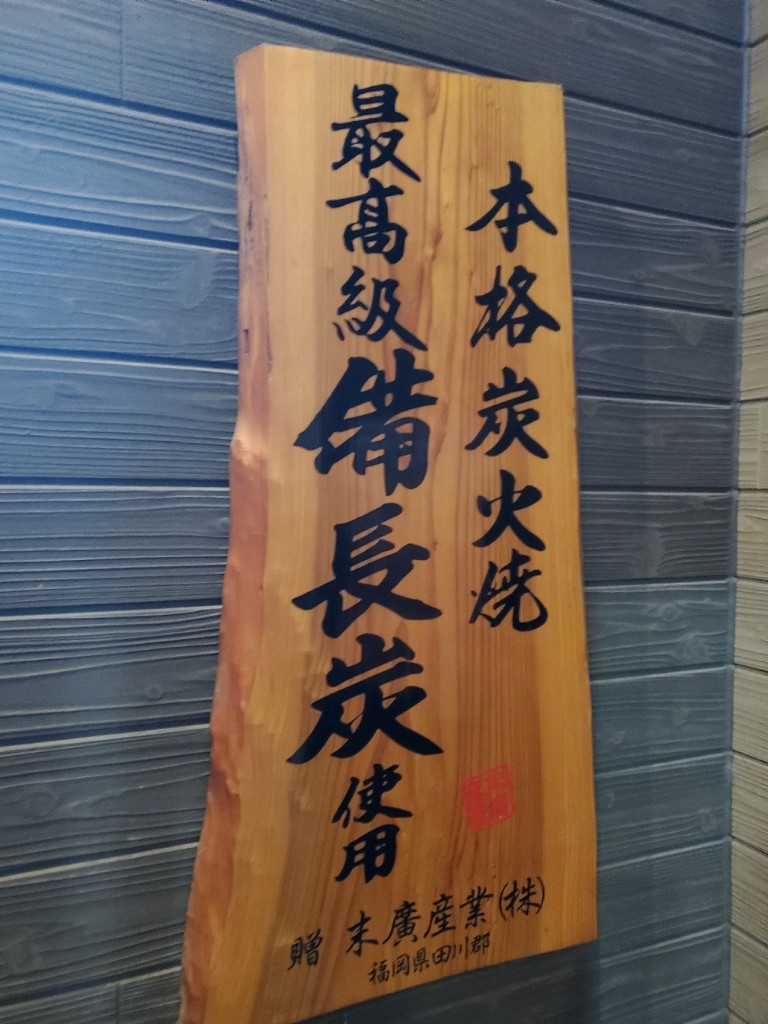 本格炭火焼
最高級備長炭使用
贈 末廣産業(株)
福岡県田川郡